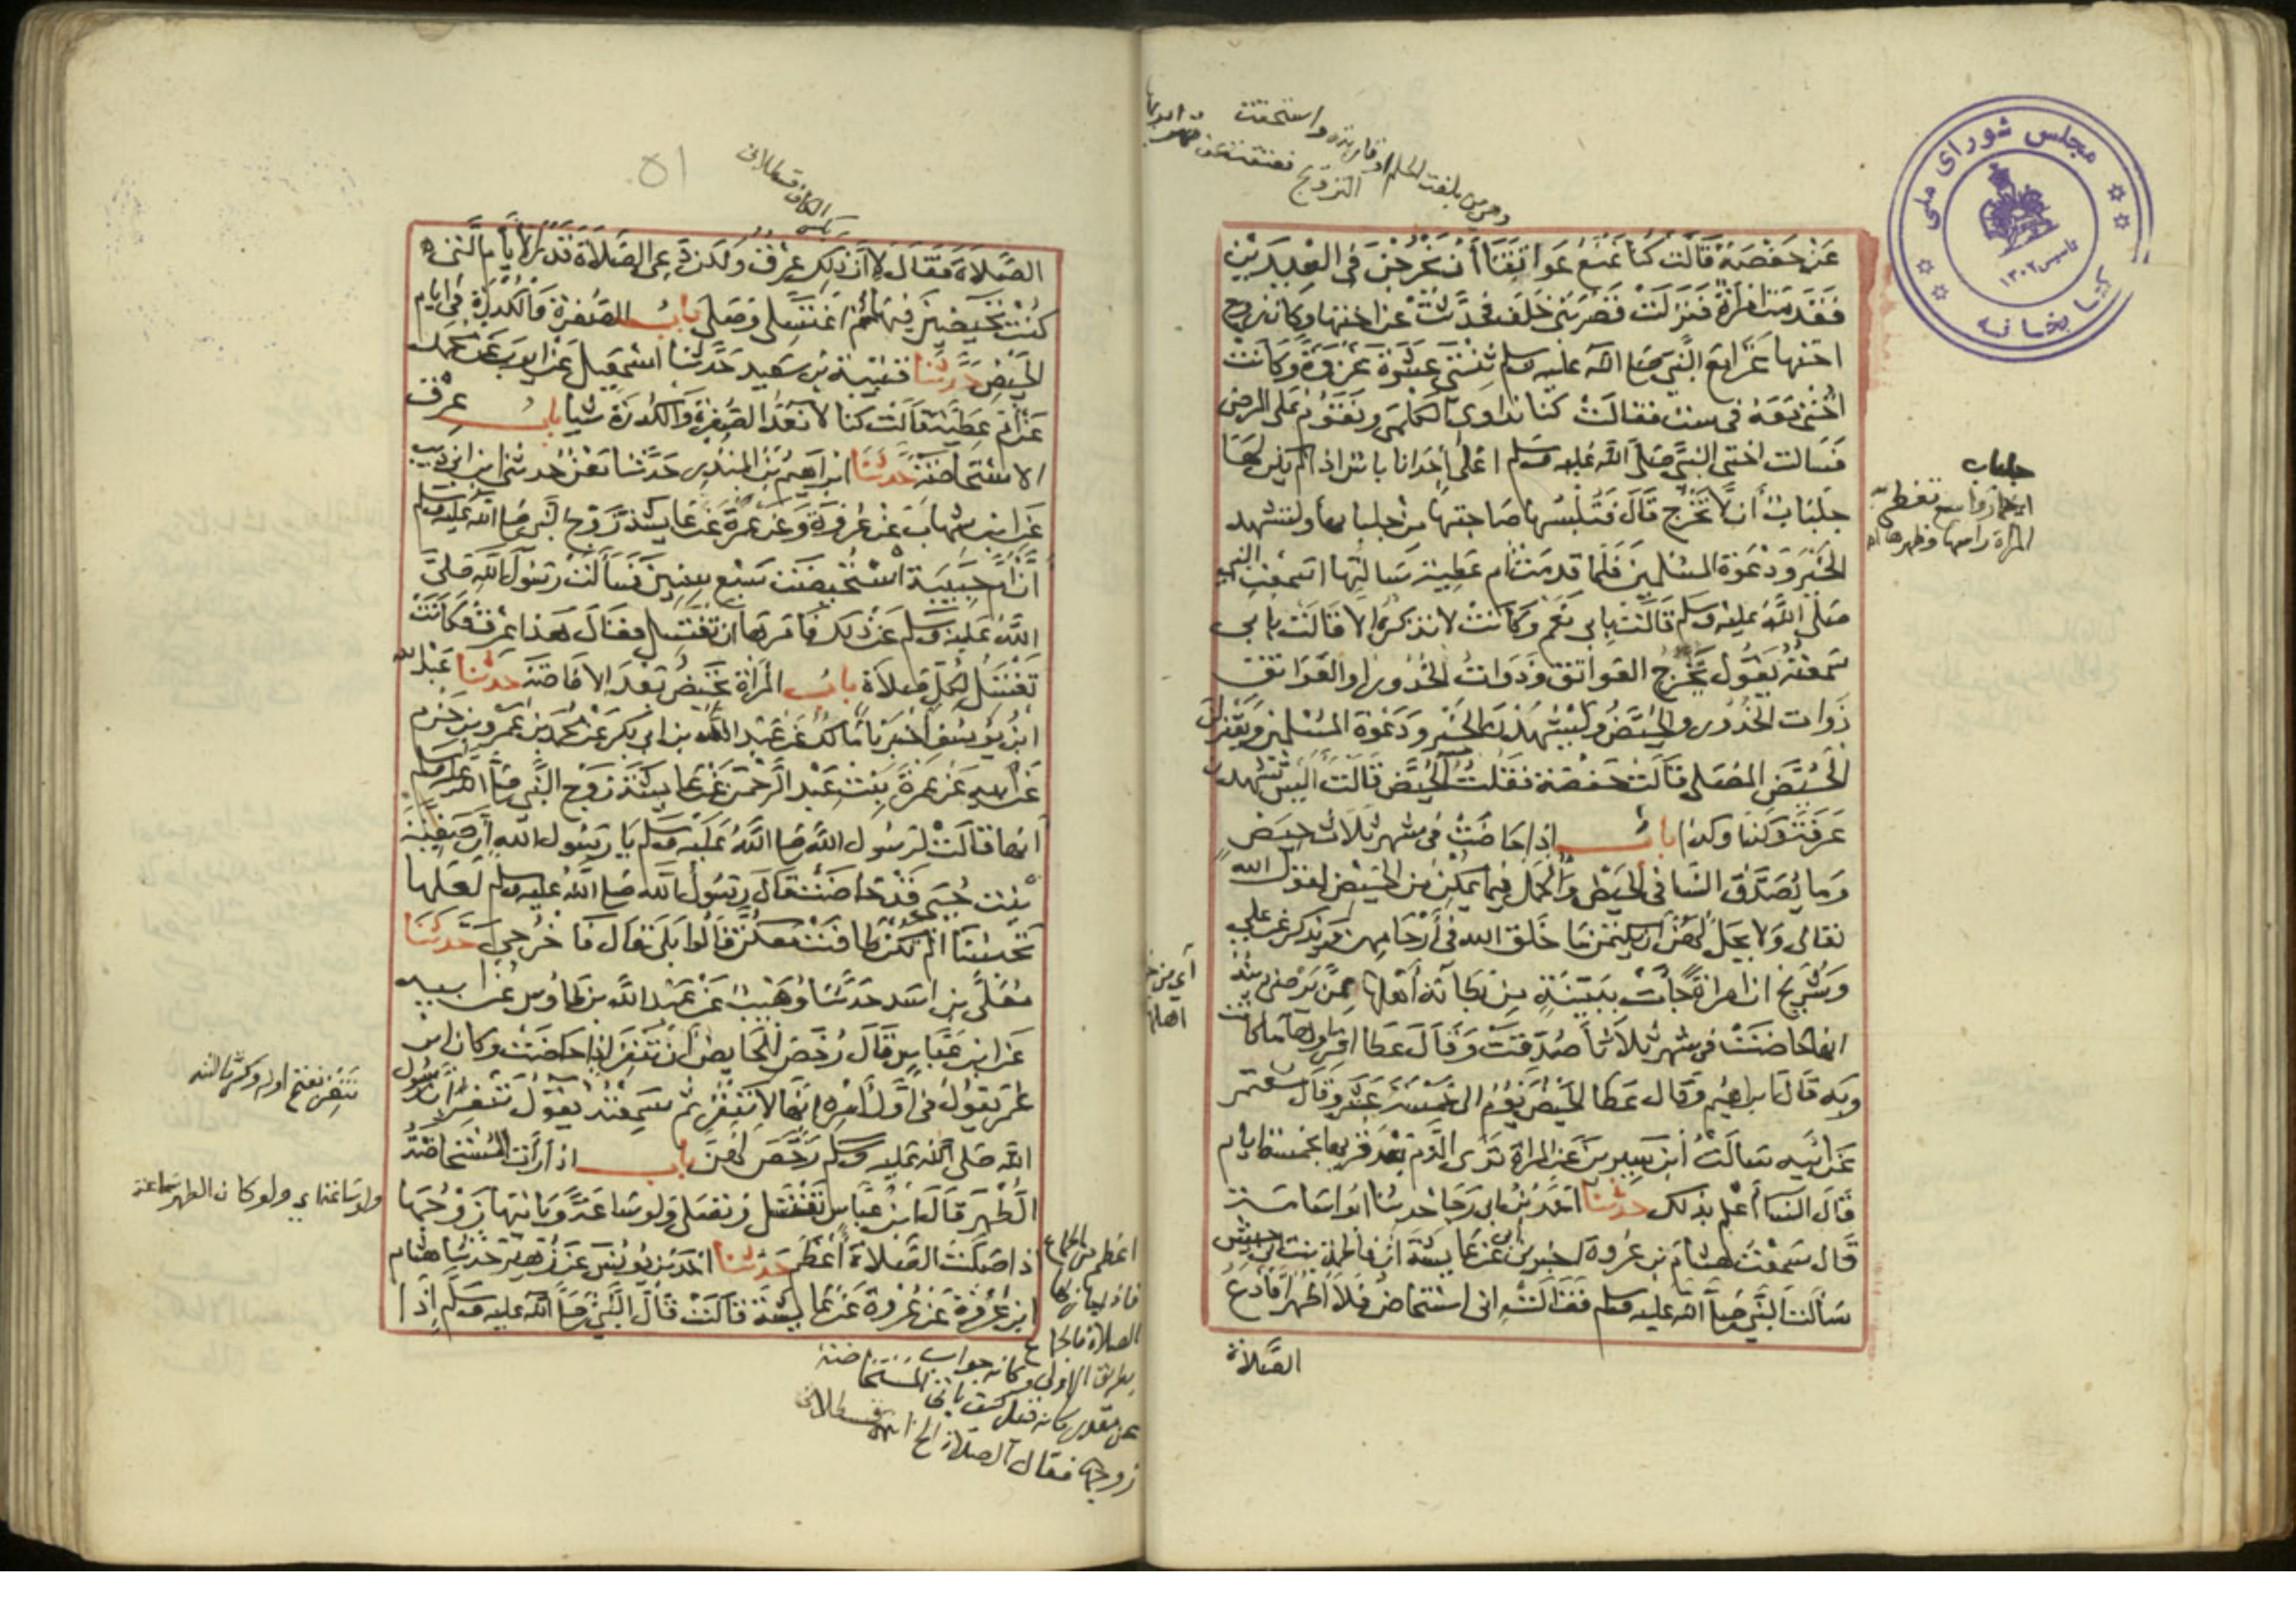 عَنْ حَفْصَةَ قَالَتْ كُنَّا نَمْنَعُ عَوَاتِقَنَا أَنْ يَخْرُجْنَ فِي الْعِيدَيْنِ
فَقَدِمَتْ امْرَأَةٌ فَنَزَلَتْ قَصْرَ بَنِي خَلَفٍ فَحَدَّثَتْ عَنْ اختها وكان زوج
اختها غزا مع النبي صلى الله عليه وسلم ثِنْتَيْ عَشْرَةَ غَزْوَةً وَكَانَتْ
أُخْتِي مَعَهُ فِي ست فقالت كنا نداوي الكلمى ونقوم على المرضى
فَسَالت اختى النبي صلى الله عليه وسلم اعلى احدانا باس اذا لم يكن لها
جلباب أن لا تخرج قال لتلبسها صاحبتها من جلبابها ولتشهد
الخير ودعوة المسلمين فلما قدمت ام عطية سالتها اسمعت النبي
صلى الله عليه وسلم قالت بابي نعم وكانت لا تذكره الا قالت بابي
سمعته يقول تخرج العواتق وذوات الخدور او العواتق
ذوات الخدور والحيض وليشهدن الخير ودعوة المسلمين ويعتزلن
الحيض المصلى قالت حفصة فقلت الحيض قالت اليس تشهدن
عرفة وكذا وكذا باب اذا حاضت في شهر ثلاث حيض
وما يصدق النسا في الحيض والحمل فيما يمكن من الحيض لقول الله
تعالى ولا يحل لهن ان يكتمن ما خلق الله في أرحامهن ويذكر عن علي
وشريح ان امراة جات ببينة من بطانة أهلها ممن يرضى دينه
انها حاضت في شهر ثلاثا صدقت وقال عطا اقراوها ما كانت
وبه قال ابراهيم وقال عطا الحيض يوم الى خمس عشر وقال معتمر
عن ابيه سالت ابن سيرين عن المراة ترى الدم بعد قريها بخمسة ايام
قال النسا أعلم بذلك حدثنا احمد بن ابي رجا حدثنا ابو اسامة
قال سمعت هشام بن عروة اخبرني ابي عن عايشة ان فاطمة بنت ابي حبيش
سالت النبي صلى الله عليه وسلم فقالت اني استحاض فلا اطهر افادع
الصلاة
جلباب
اي خمار واسع تغطي به
المراة راسها وظهرها
اي من
اهلها
مجلس شورای ملی
کتابخانه
تاسیس ۱۳۰۲
٥١
الصلاة فقال لا ان ذلك عرق ولكن دعي الصلاة قدر الايام التي
كنت تحيضين فيها ثم اغتسلي وصلي باب الصفرة والكدرة في ايام
الحيض حدثنا قتيبة بن سعيد حدثنا اسمعيل عن ايوب عن محمد
عن أم عطية قالت كنا لا نعد الصفرة والكدرة شيا باب عرق
الاستحاضة حدثنا ابراهيم بن المنذر حدثنا معن حدثني ابن ابي ذيب
عن ابن شهاب عن عروة وعن عمرة عن عايشة زوج النبي صلى الله عليه وسلم
أن أم حبيبة استحيضت سبع سنين فسألت رسول الله صلى
الله عليه وسلم عن ذلك فامرها ان تغتسل فقال هذا عرق فكانت
تغتسل لكل صلاة باب المراة تحيض بعد الافاضة حدثنا عبد الله
ابن يوسف أخبرنا مالك عن عبد الله بن ابي بكر عن محمد بن عمرو بن حزم
عن ابيه عن عمرة بنت عبد الرحمن عن عايشة زوج النبي صلى الله عليه وسلم
انها قالت لرسول الله صلى الله عليه وسلم يا رسول الله ان صفية
بنت حيي قد حاضت قال رسول الله صلى الله عليه وسلم لعلها
تحبسنا الم تكن طافت معكن قالوا بلى قال فاخرجي حدثنا
معلى بن اسد حدثنا وهيب عن عبد الله بن طاوس عن ابيه
عن ابن عباس قال رخص للحايض أن تنفر اذا حاضت وكان ابن
عمر يقول في أول أمره انها لا تنفر ثم سمعته يقول تنفر ان رسول
الله صلى الله عليه وسلم رخص لهن باب اذا رأت المستحاضة
الطهر قال ابن عباس تغتسل وتصلي ولو ساعة ويأتيها زوجها
اذا صلت الصلاة أعظم حدثنا احمد بن يونس عن زهير حدثنا هشام
ابن عروة عن عروة عن عايشة قالت قال النبي صلى الله عليه وسلم إذا
تنفر بفتح اوله وكسر ثالثه
ولو ساعة اي ولو كان الطهر ساعة
اعظم من الجماع
الصلاة فالجماع
بطريق الاولى وكانه جواب
زوجها فقال الصلاة الخ قسطلاني